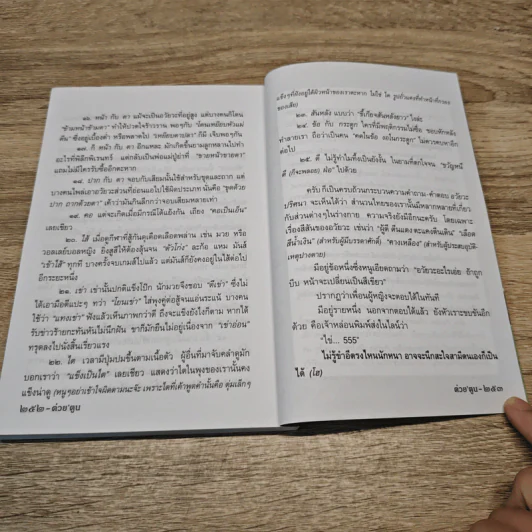 ๑๖. หน้า กับ ตา แม้จะเป็นอวัยวะที่อยู่สูง แต่บางคนก็โดน
"ข้ามหน้าข้ามตา" ทำให้ปวดใจร้าวราน พอๆกับ "โดนเหยียบหัวแม่
ตีน" ซึ่งอยู่เบื้องต่ำ หรือพลาดไป "เหยียบตาปลา" ก็มี เจ็บพอๆกัน
๑๗. ก็ หน้า กับ ตา อีกแหละ มักเกิดขึ้นยามลูกหลานไปทำ
อะไรที่พิลึกพิเรนทร์ แต่กลับเป็นพ่อแม่ปู่ย่าที่ "ขายหน้าขายตา"
แถมไม่มีใครรับซื้ออีกตะหาก
๑๘. ปาก กับ ตา จะบกับเฮี้ยนนั้นใช้สำหรับชุดและถาก แต่
บางคนไพล่เอาอวัยวะส่วนที่อ่อนแอไปใช้ผิดประเภท นั่นคือ "ขุดด้วย
ปาก ถากด้วยตา" เค้าว่ามันกินลึกกว่าจอบเสียมหลายเท่า
๑๙. คอ แต่จะเกิดเมื่อมีกรณีโต้แย้งกัน เถียง "คอเป็นเอ็น"
เลยเชียว
๒๐. ไส้ เมื่อดูกีฬาที่สู้กันดุเดือดเลือดพล่าน เช่น มวย หรือ
วอลเลย์บอลหญิง ยิ่งสูสีให้ต้องลุ้นจน "ตัวโก่ง" ละก้อ แหม มันส์
"เข้าไส้" ทุกที บางครั้งจบเกมส์ไปแล้ว แต่มันส์ก็ยังคงอยู่ในไส้ต่อไป
อีกระยะหนึ่ง
๒๑. เข่า เข่านั้นปกติแข็งโป๊ก นักมวยจึงชอบ "ตีเข่า" ซึ่งไม่
ได้เอามือตีแปะๆ ทว่า "โยนเข่า" ใส่พุงคู่ต่อสู้จนแอ่นระแน้ บางคน
ใช้ว่า "แทงเข่า" ฟังแล้วเห็นภาพกว่าตี ถึงจะแข็งยังไงก็ตาม หากได้
รับข่าวร้ายกะทันหันไม่นึกฝัน ขาก็มักยืนไม่อยู่เนื่องจาก "เข่าอ่อน"
ทรุดลงไปนั่งสิ้นเรี่ยวแรง
๒๒. ไต เวลามีปุ่มปมขึ้นตามเนื้อตัว ผู้อื่นที่มาจับคลำดูมัก
บอกเราว่า "แข็งเป็นไต" เลยเชียว แสดงว่าไตในพุงของเรานั้นคง
แข็งน่าดู (หนูๆอย่าเข้าใจผิดตามนะจ๊ะ เพราะไตที่เค้าพูดค่านั้นคือ ตุ่มเล็กๆ
๒๕๒-ต่วย'ตูน
แข็งๆที่ยังอยู่ใต้ผิวหน้าของเราตะหาก ไม่ใช่ ไต
ของเสีย)
๒๓. สันหลัง แบบว่า "ขี้เกียจสันหลังยาว" ไงล่ะ
๒๔. ข้อ กับ กระดูก ใครที่มีพฤติกรรมไม่ซื่อ ชอบหักหลัง
ทำลายเรา ถือว่าเป็นคน "คดในข้อ งอในกระดูก" ไม่ควรคบหาอีก
ต่อไป
๒๕. ดี ไม่รู้ทำไมทั้งเป็นยังงั้น ในยามที่ตกใจจน "ขวัญหนี
ดี (ก็จะพลอย) ฝ่อ" ไปด้วย
ครับ ก็เป็นครบถ้วนกระบวนความคำถาม-คำตอบ อวัยวะ
ปริศนา จะเห็นได้ว่า สำนวนไทยของเรานั้นมีหลากหลายที่เกี่ยว
กับส่วนต่างๆในร่างกาย ความจริงยังมีอีกนะครับ โดยเฉพาะ
เรื่องสีสันของอวัยวะ เช่นว่า "ผู้ดี ตีนแดง ตะแคงตีนเดิน" "เลือด
สีน้ำเงิน" (สำหรับผู้มีบรรดาศักดิ์) "คางเหลือง" (สำหรับผู้ประสบอุบัติ-
เหตุปางตาย)
มีอยู่ข้อหนึ่งซึ่งหนูเอียดถามว่า "อวัยวะอะไรเอ่ย ถ้าถูก
บีบ หน้าจะเปลี่ยนเป็นสีเขียว"
ปรากฏว่าเพื่อนผู้หญิงจะตอบได้ในทันที
มีอยู่รายหนึ่ง นอกจากตอบได้แล้ว ยังหัวเราะขบขันอีก
ด้วย คือเจ้าหล่อนพิมพ์ส่งในไลน์ว่า
"ไข่... 555"
ไม่รู้ขำอีตรงไหนนักหนา อาจจะนึกสะใจสามีตนเองก็เป็น
ได้ (โฮ)
ต่วย'ตูน-๒๕๓